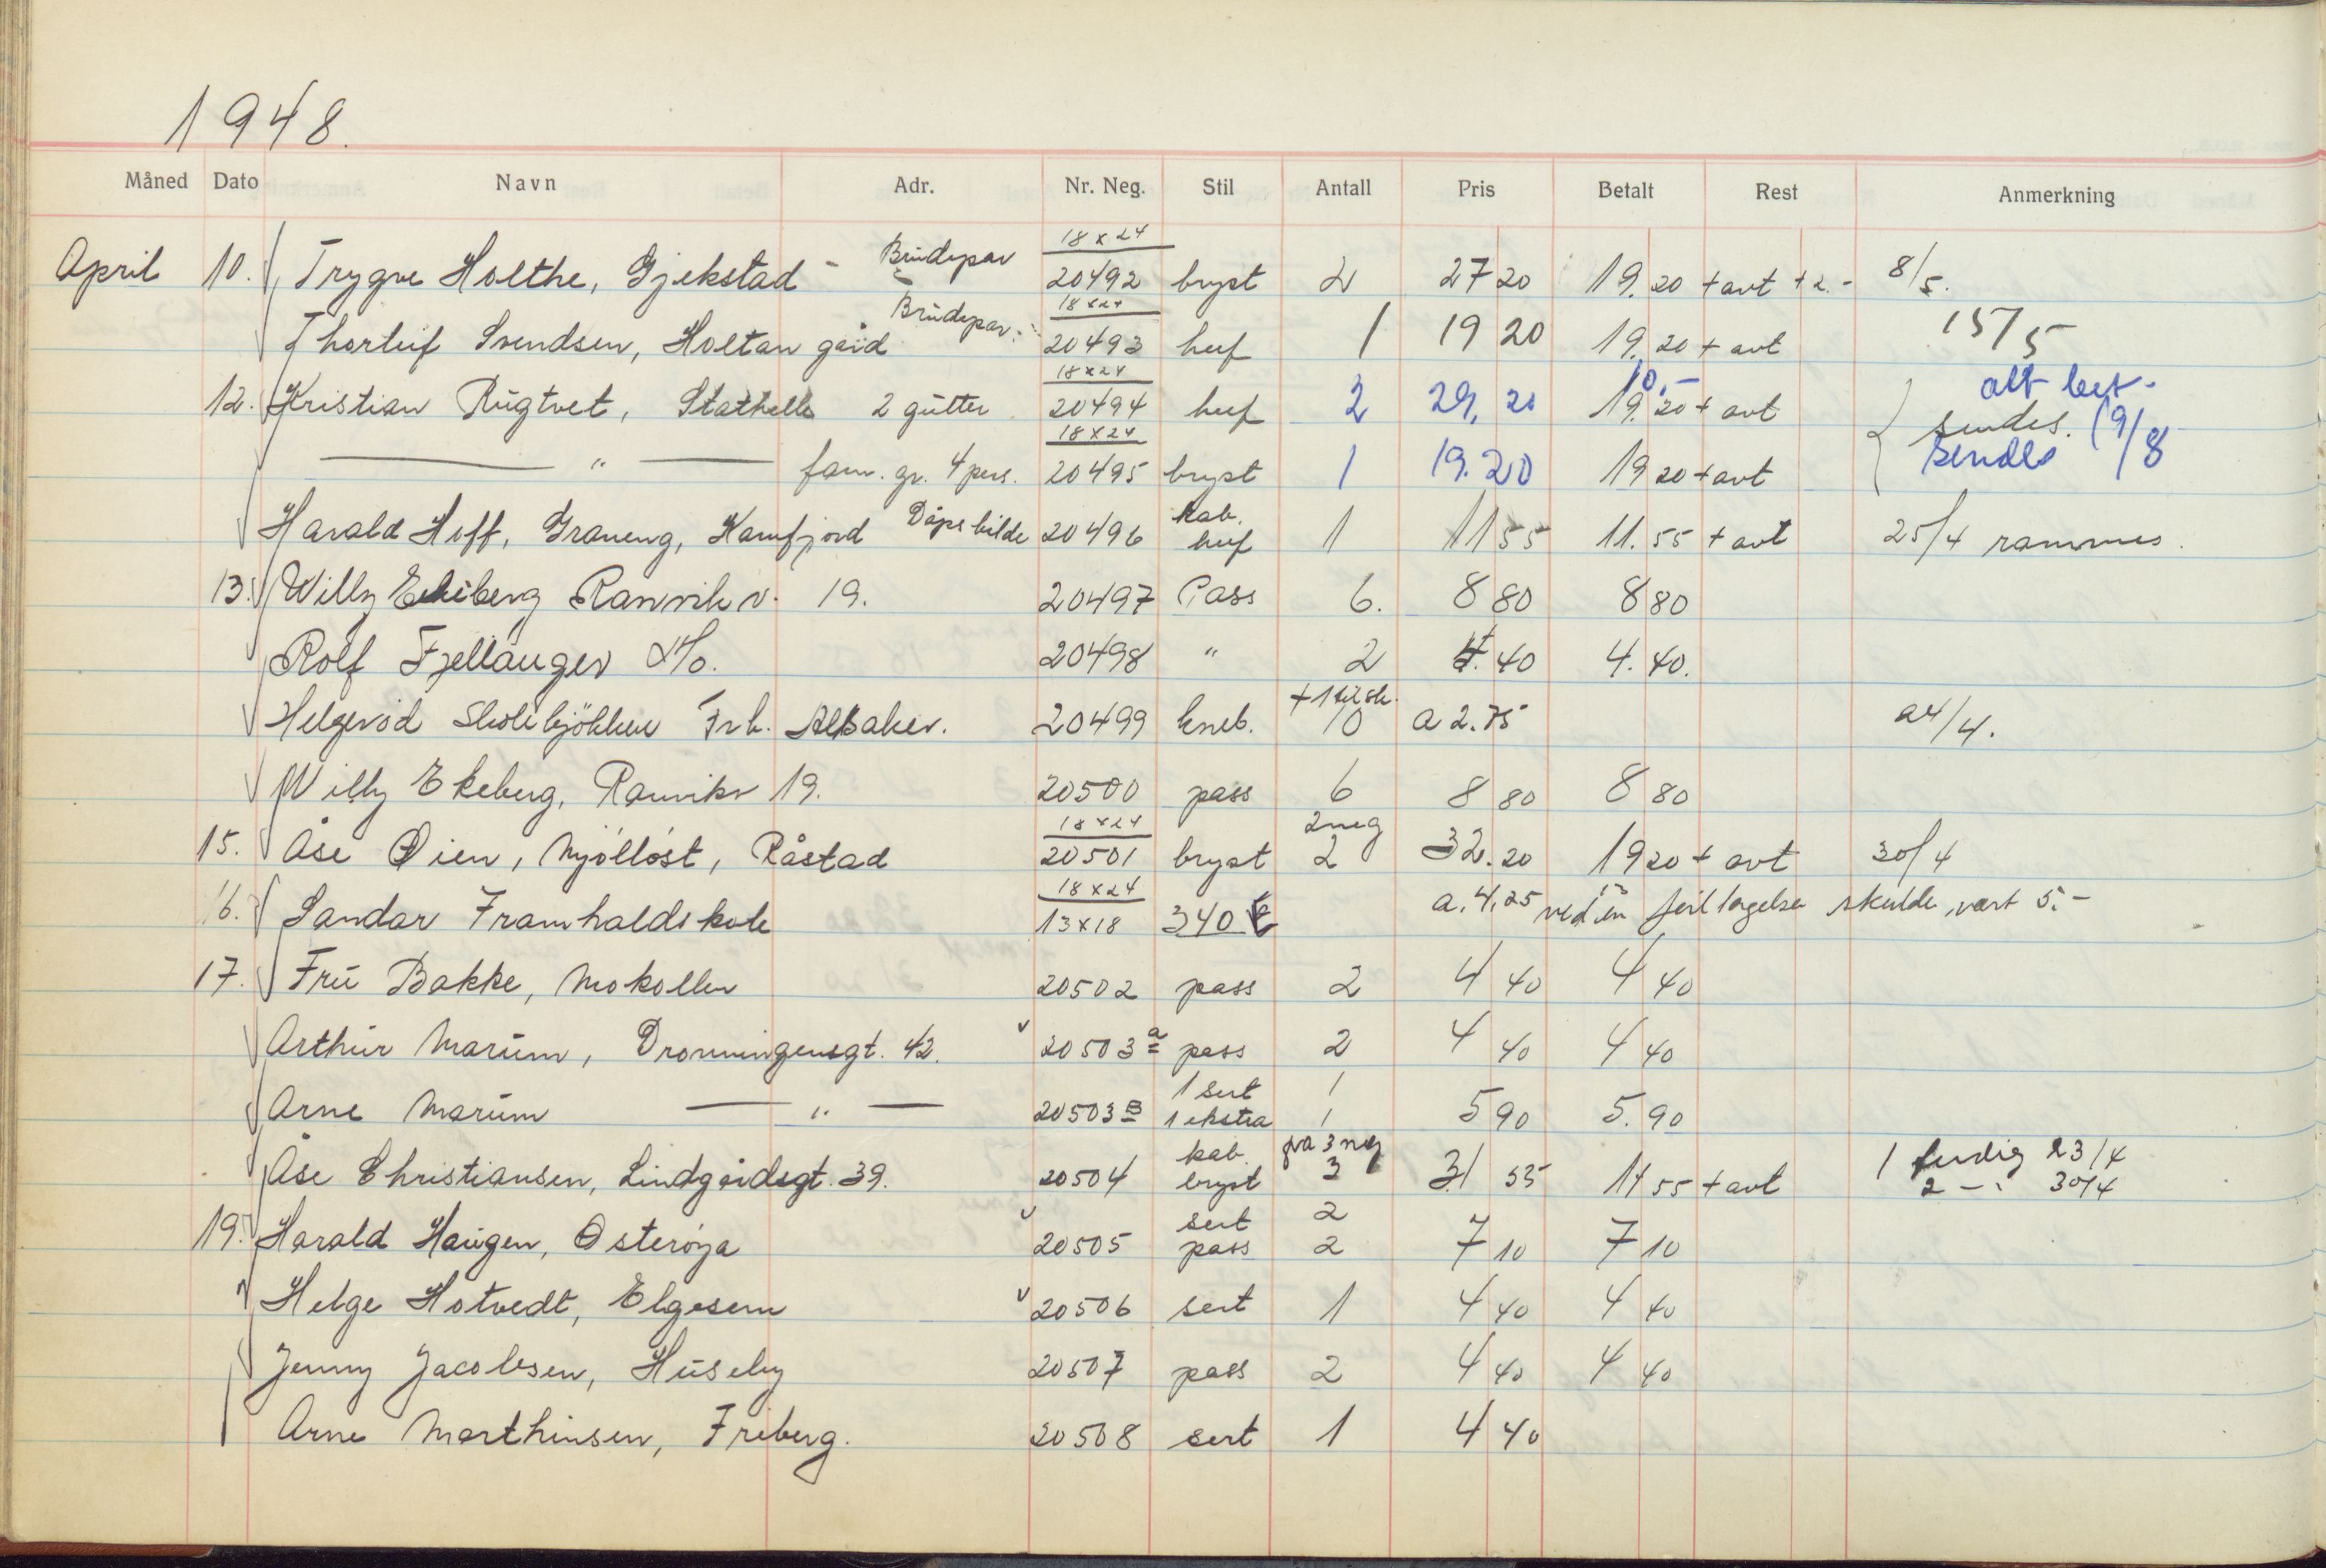 1948.
Måned Dato Navn Adr. Nr. Neg. Stil Antall Pris Betalt Rest Anmerkning
April 10. Trygve Holthe, Gjekstad - Brudepar 18x24 20492 bryst 2 27 20 19.20 + avt + 2.- 8/5.
Thorleif Svendsen, Holtan gård Brudepar. 18x24 20493 huf 1 19 20 19.20 + avt 15/5
12. Kristian Rugtvet, Stathelle 2 gutter 18x24 20494 huf 2 29,20 10.- 19.20 + avt alt bet. sendes. 19/8
— " — fam. gr. 4 pers. 18x24 20495 bryst 1 19.20 19 20 + avt sendes
Harald Hoff, Graneng, Kamfjord Dåpsbilde 20496 kab. huf 1 11 55 11.55 + avt 25/4 rammes.
13. Willy Ekeberg Ranvik v. 19. 20497 Pass 6. 8 80 8 80
Rolf Fjellanger 20498 " 2 4.40 4.40.
Helgerød Skolekjökken Frk. Albaker. 20499 kneb. + 1 til sk. 10 a 2.75 24/4.
Willy Ekeberg, Ranvikv 19. 20500 pass 6 8 80 8 80
15. Åse Øien, Mjølløst, Råstad 18x24 20501 bryst 2 neg 2 32.20 19 20 + avt 30/4
16. Sandar Framhaldskole 18x24 13x18 340 a. 4,25 ved en feiltagelse skulde vært 5.-
17. Fru Bakke, Mokollen 20502 pass 2 4 40 4 40
Arthur Marum, Dronningensgt. 42. 20503 a pass 2 4 40 4 40
Arne Marum — " — 20503 B 1 sert 1 1 ekstra 1 5 90 5.90
Åse Christiansen, Lindgårdsgt. 39. 20504 kab. bryst fra 3 neg 3 31 55 11 55 + avt 1 ferdig 23/4 2 -"- 30/4
19. Harald Haugen, Østerøya 20505 sert 2 pass 2 7 10 7 10
Helge Hotvedt, Elgesem 20506 sert 1 4 40 4 40
Jenny Jacobsen, Huseby 20507 pass 2 4 40 4 40
Arne Marthinsen, Friberg. 20508 sert 1 4 40